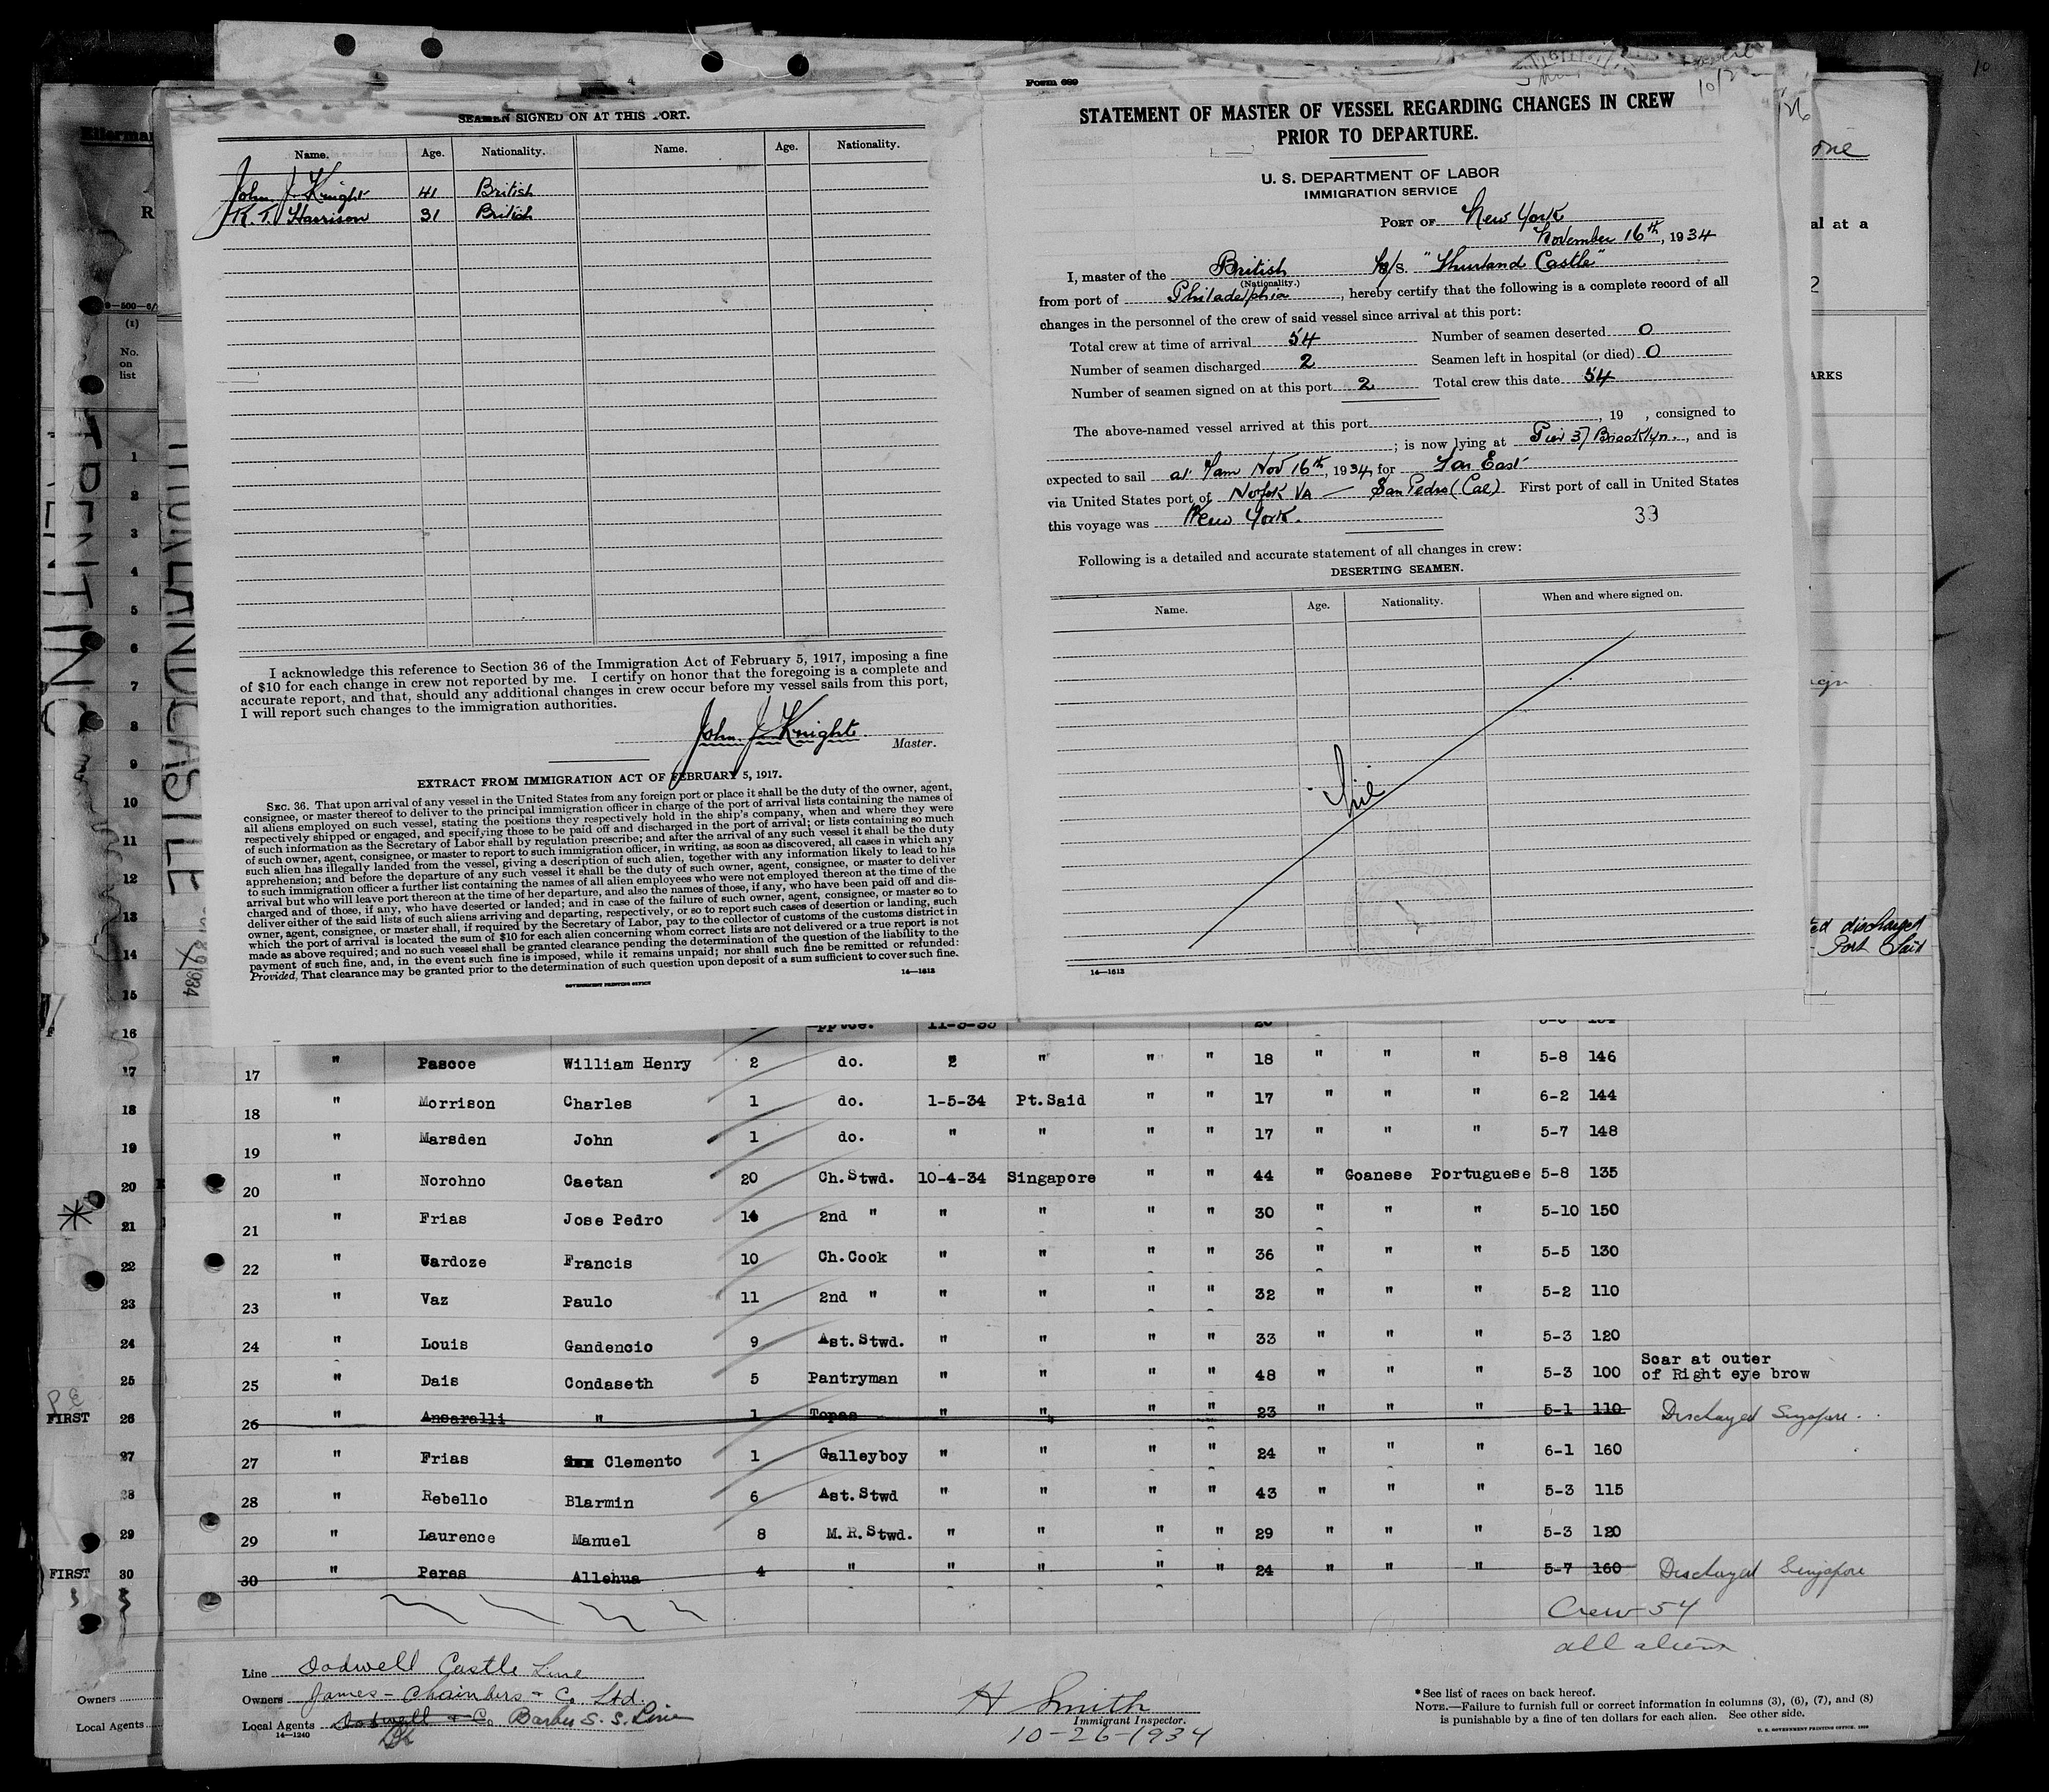 Form 689
SEAMEN SIGNED ON AT THIS PORT.
Name. Age. Nationality. Name. Age. Nationality.
John J Knight 41 British
R. T. Harrison 31 British
I acknowledge this reference to Section 36 of the Immigration Act of February 5, 1917, imposing a fine
of $10 for each change in crew not reported by me. I certify on honor that the foregoing is a complete and
accurate report, and that, should any additional changes in crew occur before my vessel sails from this port,
I will report such changes to the immigration authorities.
John J Knight
Master.
EXTRACT FROM IMMIGRATION ACT OF FEBRUARY 5, 1917.
SEC. 36. That upon arrival of any vessel in the United States from any foreign port or place it shall be the duty of the owner, agent,
consignee, or master thereof to deliver to the principal immigration officer in charge of the port of arrival lists containing the names of
all aliens employed on such vessel, stating the positions they respectively hold in the ship's company, when and where they were
respectively shipped or engaged, and specifying those to be paid off and discharged in the port of arrival; or lists containing so much
of such information as the Secretary of Labor shall by regulation prescribe; and after the arrival of any such vessel it shall be the duty
of such owner, agent, consignee, or master to report to such immigration officer, in writing, as soon as discovered, all cases in which any
such alien has illegally landed from the vessel, giving a description of such alien, together with any information likely to lead to his
apprehension; and before the departure of any such vessel it shall be the duty of such owner, agent, consignee, or master to deliver
to such immigration officer a further list containing the names of all alien employees who were not employed thereon at the time of the
arrival but who will leave port thereon at the time of her departure, and also the names of those, if any, who have been paid off and dis-
charged and of those, if any, who have deserted or landed; and in case of the failure of such owner, agent, consignee, or master so to
deliver either of the said lists of such aliens arriving and departing, respectively, or so to report such cases of desertion or landing, such
owner, agent, consignee, or master shall, if required by the Secretary of Labor, pay to the collector of customs of the customs district in
which the port of arrival is located the sum of $10 for each alien concerning whom correct lists are not delivered or a true report is not
made as above required; and no such vessel shall be granted clearance pending the determination of the question of the liability to the
payment of such fine, and, in the event such fine is imposed, while it remains unpaid; nor shall such fine be remitted or refunded:
Provided, That clearance may be granted prior to the determination of such question upon deposit of a sum sufficient to cover such fine.
14—1613
GOVERNMENT PRINTING OFFICE
STATEMENT OF MASTER OF VESSEL REGARDING CHANGES IN CREW
PRIOR TO DEPARTURE.
U. S. DEPARTMENT OF LABOR
IMMIGRATION SERVICE
PORT OF New York
November 16th, 1934
I, master of the British S/S. "Thurland Castle"
(Nationality.)
from port of Philadelphia, hereby certify that the following is a complete record of all
changes in the personnel of the crew of said vessel since arrival at this port:
Total crew at time of arrival 54 Number of seamen deserted 0
Number of seamen discharged 2 Seamen left in hospital (or died) 0
Number of seamen signed on at this port 2 Total crew this date 54
The above-named vessel arrived at this port , 19 , consigned to
; is now lying at Pier 37 Brooklyn., and is
expected to sail at 7am Nov 16th, 1934, for Far East
via United States port of Norfolk VA — San Pedro (Cal) First port of call in United States
this voyage was New York.
33
Following is a detailed and accurate statement of all changes in crew:
DESERTING SEAMEN.
Name. Age. Nationality. When and where signed on.
Nil
14—1613
17 " Pascoe William Henry 2 do. " " " " 18 " " " 5-8 146
18 " Morrison Charles 1 do. 1-5-34 Pt.Said " " 17 " " " 6-2 144
19 " Marsden John 1 do. " " " " 17 " " " 5-7 148
20 " Norohno Caetan 20 Ch.Stwd. 10-4-34 Singapore " " 44 " Goanese Portuguese 5-8 135
21 " Frias Jose Pedro 14 2nd " " " " " 30 " " " 5-10 150
22 " Cardoze Francis 10 Ch.Cook " " " " 36 " " " 5-5 130
23 " Vaz Paulo 11 2nd " " " " " 32 " " " 5-2 110
24 " Louis Gandencio 9 Ast.Stwd. " " " " 33 " " " 5-3 120
25 " Dais Condaseth 5 Pantryman " " " " 48 " " " 5-3 100 Scar at outer
of Right eye brow
26 " Ansaralli " 1 Topas " " " " 23 " " " 5-1 110 Discharged Singapore.
27 " Frias Clemento 1 Galleyboy " " " " 24 " " " 6-1 160
28 " Rebello Blarmin 6 Ast.Stwd " " " " 43 " " " 5-3 115
29 " Laurence Manuel 8 M.R.Stwd. " " " " 29 " " " 5-3 120
30 " Peres Allehua 4 " " " " " 24 " " " 5-7 160 Discharged Singapore
Crew 54
all aliens
Line Dodwell Castle Line
Owners James - Chambers + Co Ltd.
Local Agents Dodwell + Co. Barber S. S. Line
14—1240
H Smith
Immigrant Inspector.
10-26-1934
* See list of races on back hereof.
NOTE.—Failure to furnish full or correct information in columns (3), (6), (7), and (8)
is punishable by a fine of ten dollars for each alien. See other side.
U. S. GOVERNMENT PRINTING OFFICE
(1)
No.
on
list
1
2
3
4
5
6
7
8
9
10
11
12
13
14
15
16
17
18
19
20
21
22
23
24
25
FIRST 26
27
28
29
FIRST 30
Owners
Local Agents
THURLAND CASTLE
TRENTINO
al at a
ARKS
discharged
Port Said